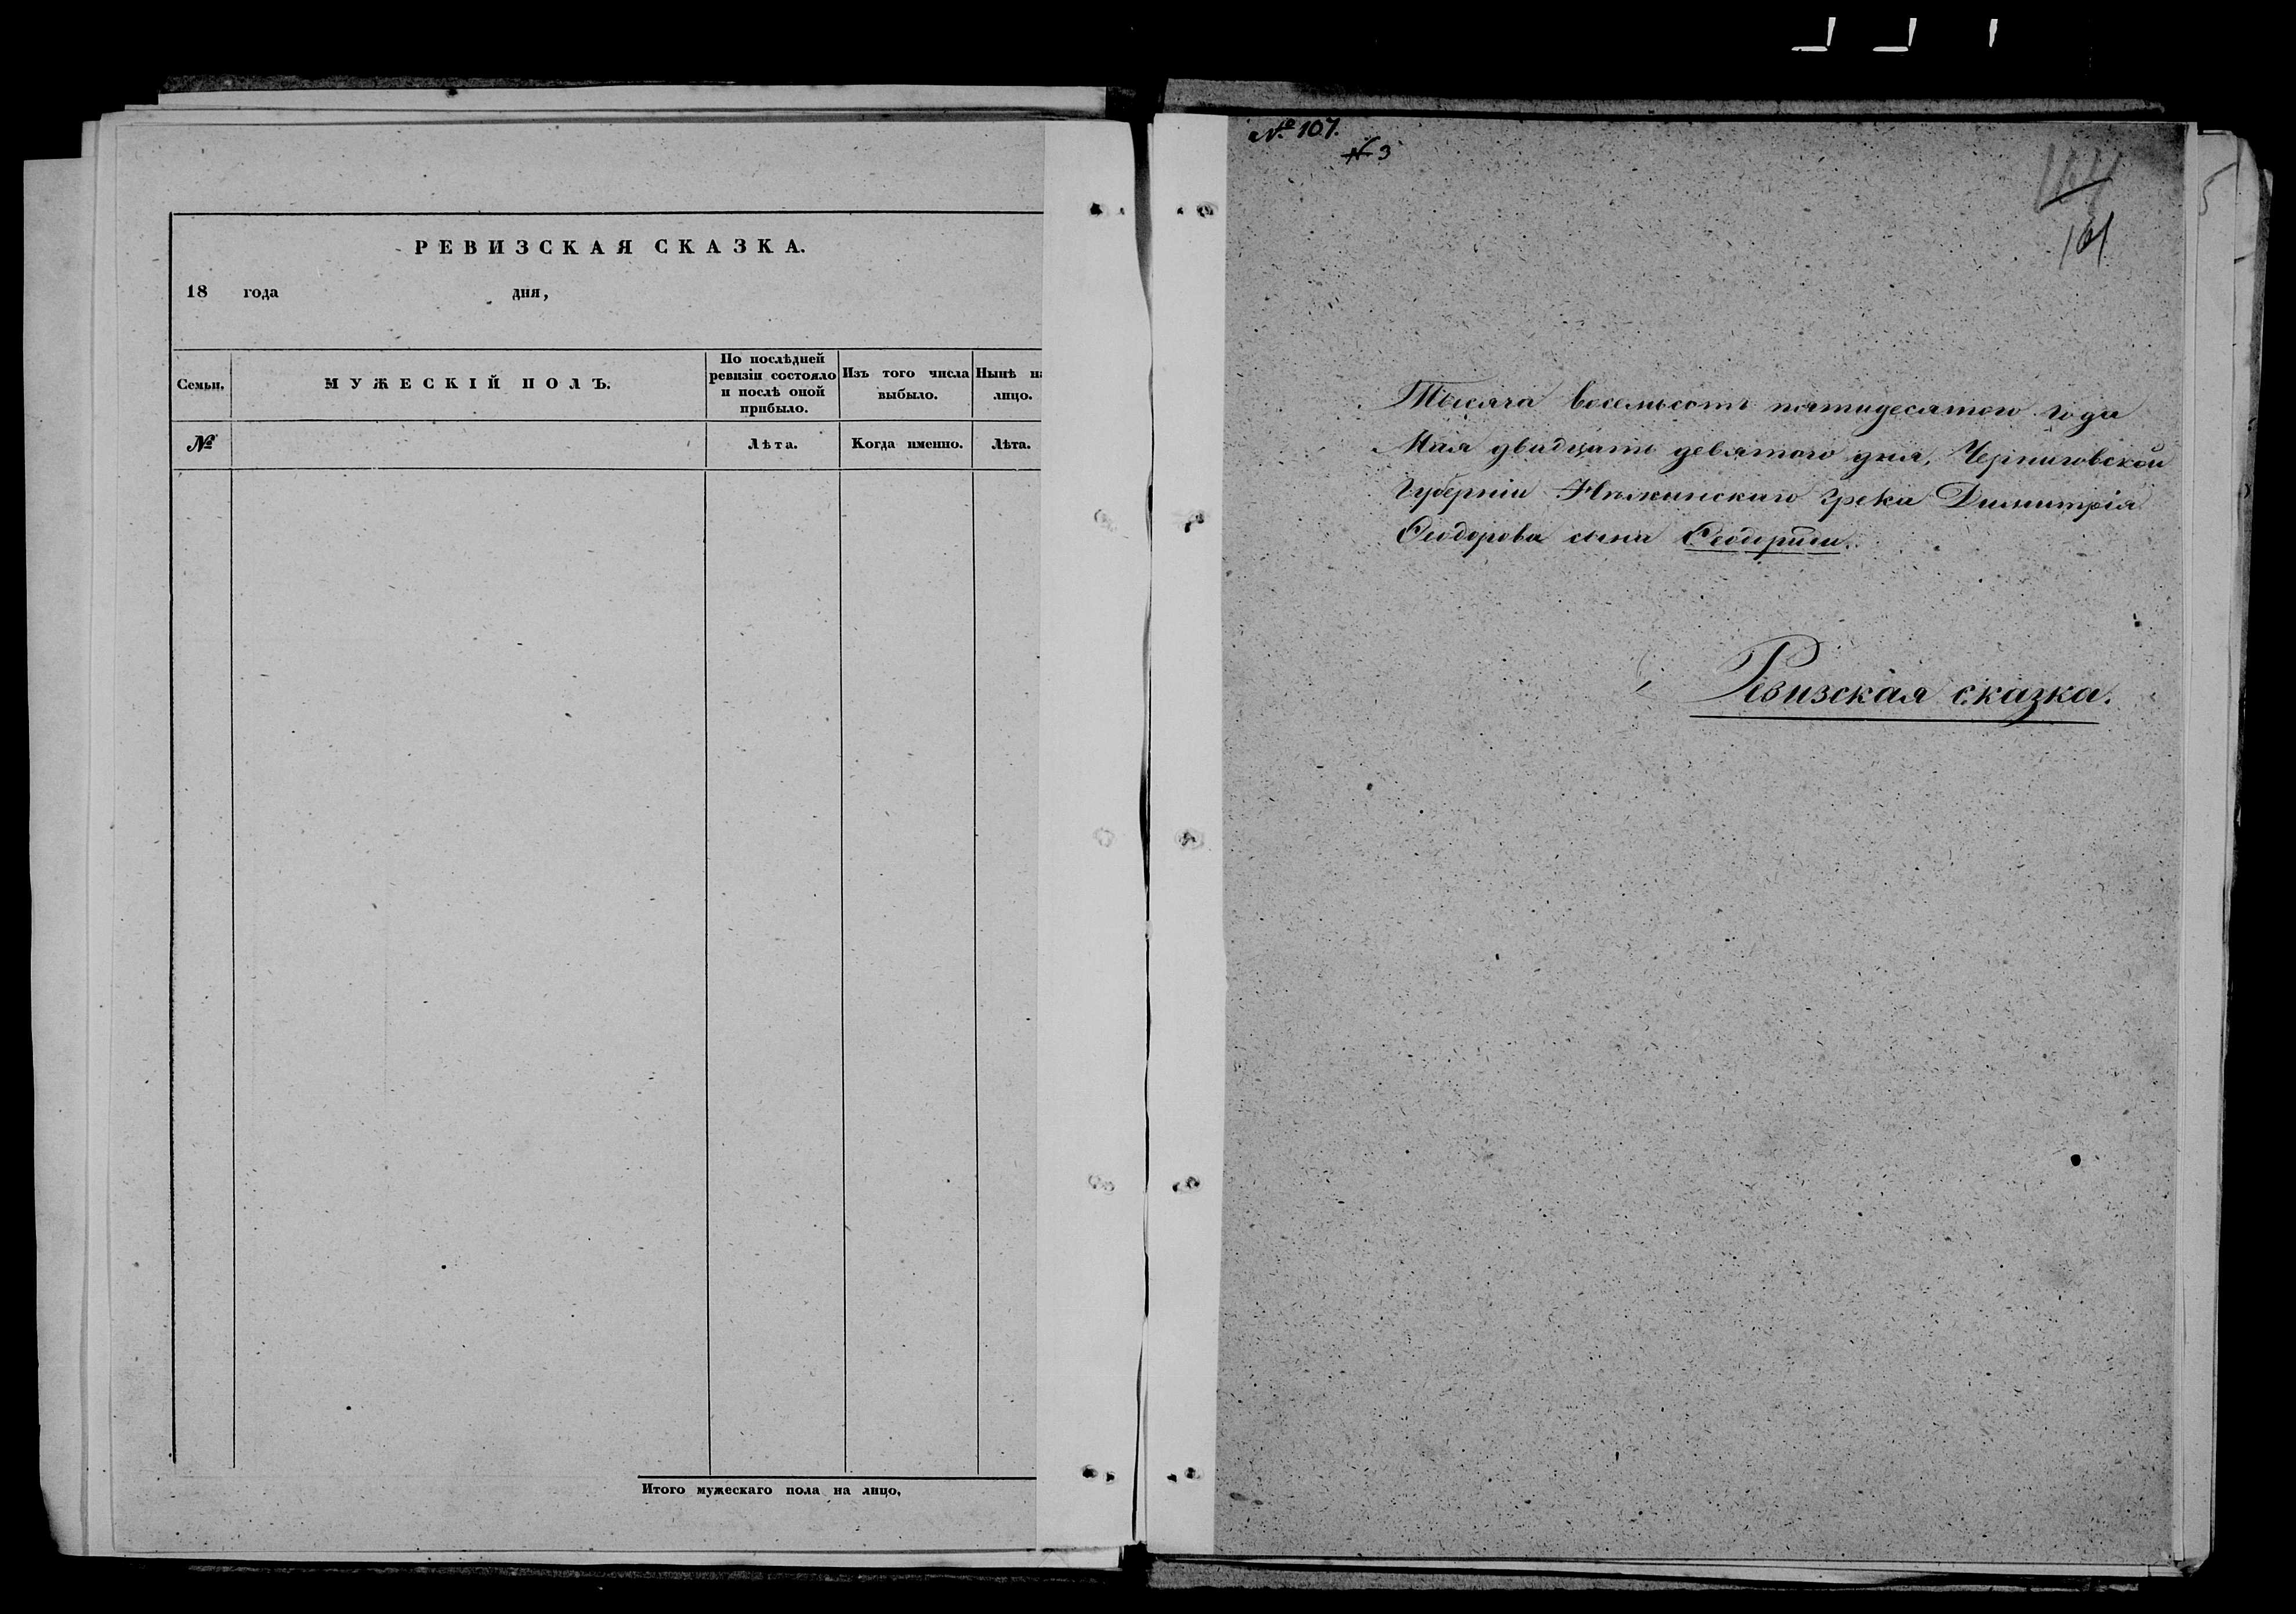 РЕВИЗСКАЯ СКАЗКА.
18 года дня,
Семьи.
МУЖЕСКІЙ ПОЛЪ.
По послѣдней
ревизіи состояло
и послѣ оной
прибыло.
Изъ того числа
выбыло.
Нынѣ на
лицо.
№
Лѣта.
Когда именно.
Лѣта.
Итого мужескаго пола на лицо,
№ 107.
№ 3
161
Тысяча восемьсотъ пятидесятого года
Мая двадцать девятого дня, Черниговской
Губерніи Нѣжинскаго Грека Димитрія
Феодорова сына Феодориди.
Ревизская сказка.
5